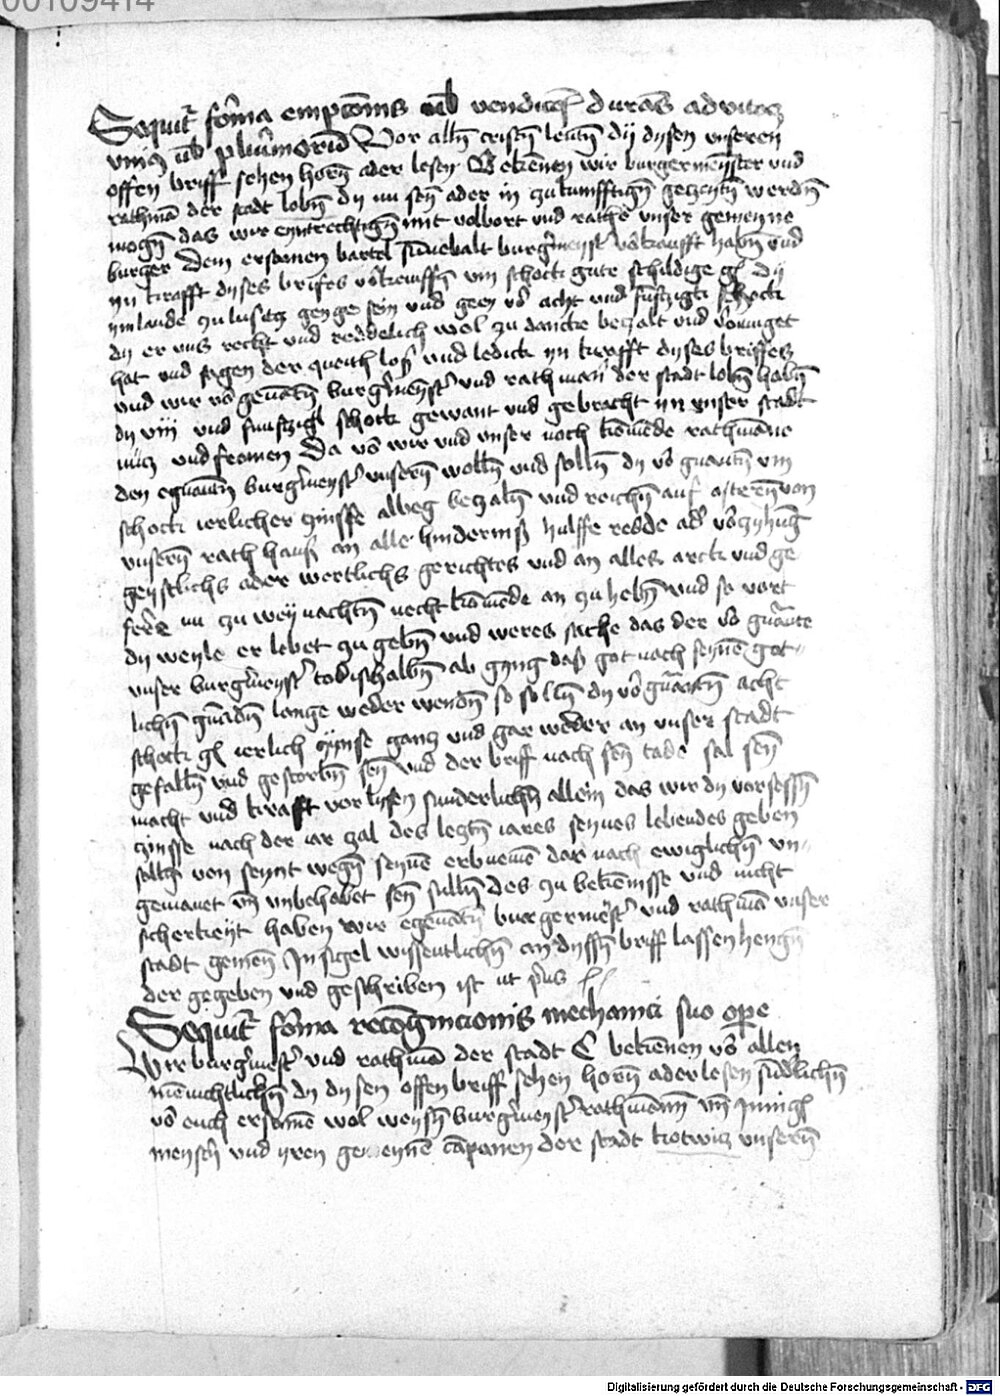 00109414
Sequitur forma empcionis vel vendicionis durans ad vitam
vnius vel plurimorum Vor allen cristen leuten dy dysen vnseren
offen briff sehen horen ader lesen Bekennen wir burgermeyster vnd
rathman der stadt lobin dy nu sein ader in zukunfftigen geczeyten werden
mogen das wir eyntrechtigen mit volbort vnd rathe vnser gemeyne
burger Dem ersamen bartel burgermeyster vorkaufft haben vnd
yn krafft dyses brifes vorkeuffen vm schock gute schildige gl dy
ym lande zu lusitz genge sein vnd geen vor acht vnd funfczigk schock
dy er vns recht vnd reddelich wol zu dancke beczalt vnd
hat vnd sagen der queith loß vnd ledick yn krafft dyses briffes
vnd wir vorgenanten burgermeyster vnd rathman der stadt lobin haben
dy viii vnd funfczigk schock gewant vnd gebracht yn vnser stadt
nutz vnd fromen Da vor wir vnd vnser noch komende rathmanne
den egnanten burgermeyster vnseren wollen vnd sollen dy vorgnanten vm
schock ierlicher zinsse alweg beczalen vnd reichen auf asteren von
vnseren rath hauß an alle hinderniß hulffe redde ader
geystlichs ader wertlichs gerichtes vnd an alles arck vnd ge
nu zu weynachten nechtkomende an zu heben vnd so vort
dy weyle er lebet zu geben vnd weres sache das der vorgnante
vnser burgermeyster todishalben ab gyng daß got nach seyner got
lichen gnaden lange weder wenden so sollen dy vorgnanten acht
schock gl ierlich zynse gantz vnd gar weder an vnser stadt
gefallen vnd gestorben sein vnd der briff nach sein tade sal sein
macht vnd krafft vorlysen sunderlichen allein das wir dy vorsessen
zinsse nach der iar zal des letzten iares seynes lebendes geben
sollen von seynt wegen seynen erbnemen dar nach ewiglichen vn
gemanet vnd vnbehabet sein sullen des zu bekenniße vnd
sicherkeyt haben wir egenanten burgermeister vnd rathman vnser
stadt gemein Insigel wissentlichen an dyssen briff lassen hengen
der gegeben vnd geschriben ist ut prius
Sequitur forma recognicionis mechanici suo opere
Wir burgermeister vnd rathman der stadt C bekennen vor allen
menichlichen dy dysen offen briff sehen horen ader lesen sunderlichen
vor euch ersamen wol weysen burgermeyster rathmannen vnd
meyster vnd yren gemeynen der stadt kotwitz vnseren
Digitalisierung gefördert durch die Deutsche Forschungsgemeinschaft - DFG